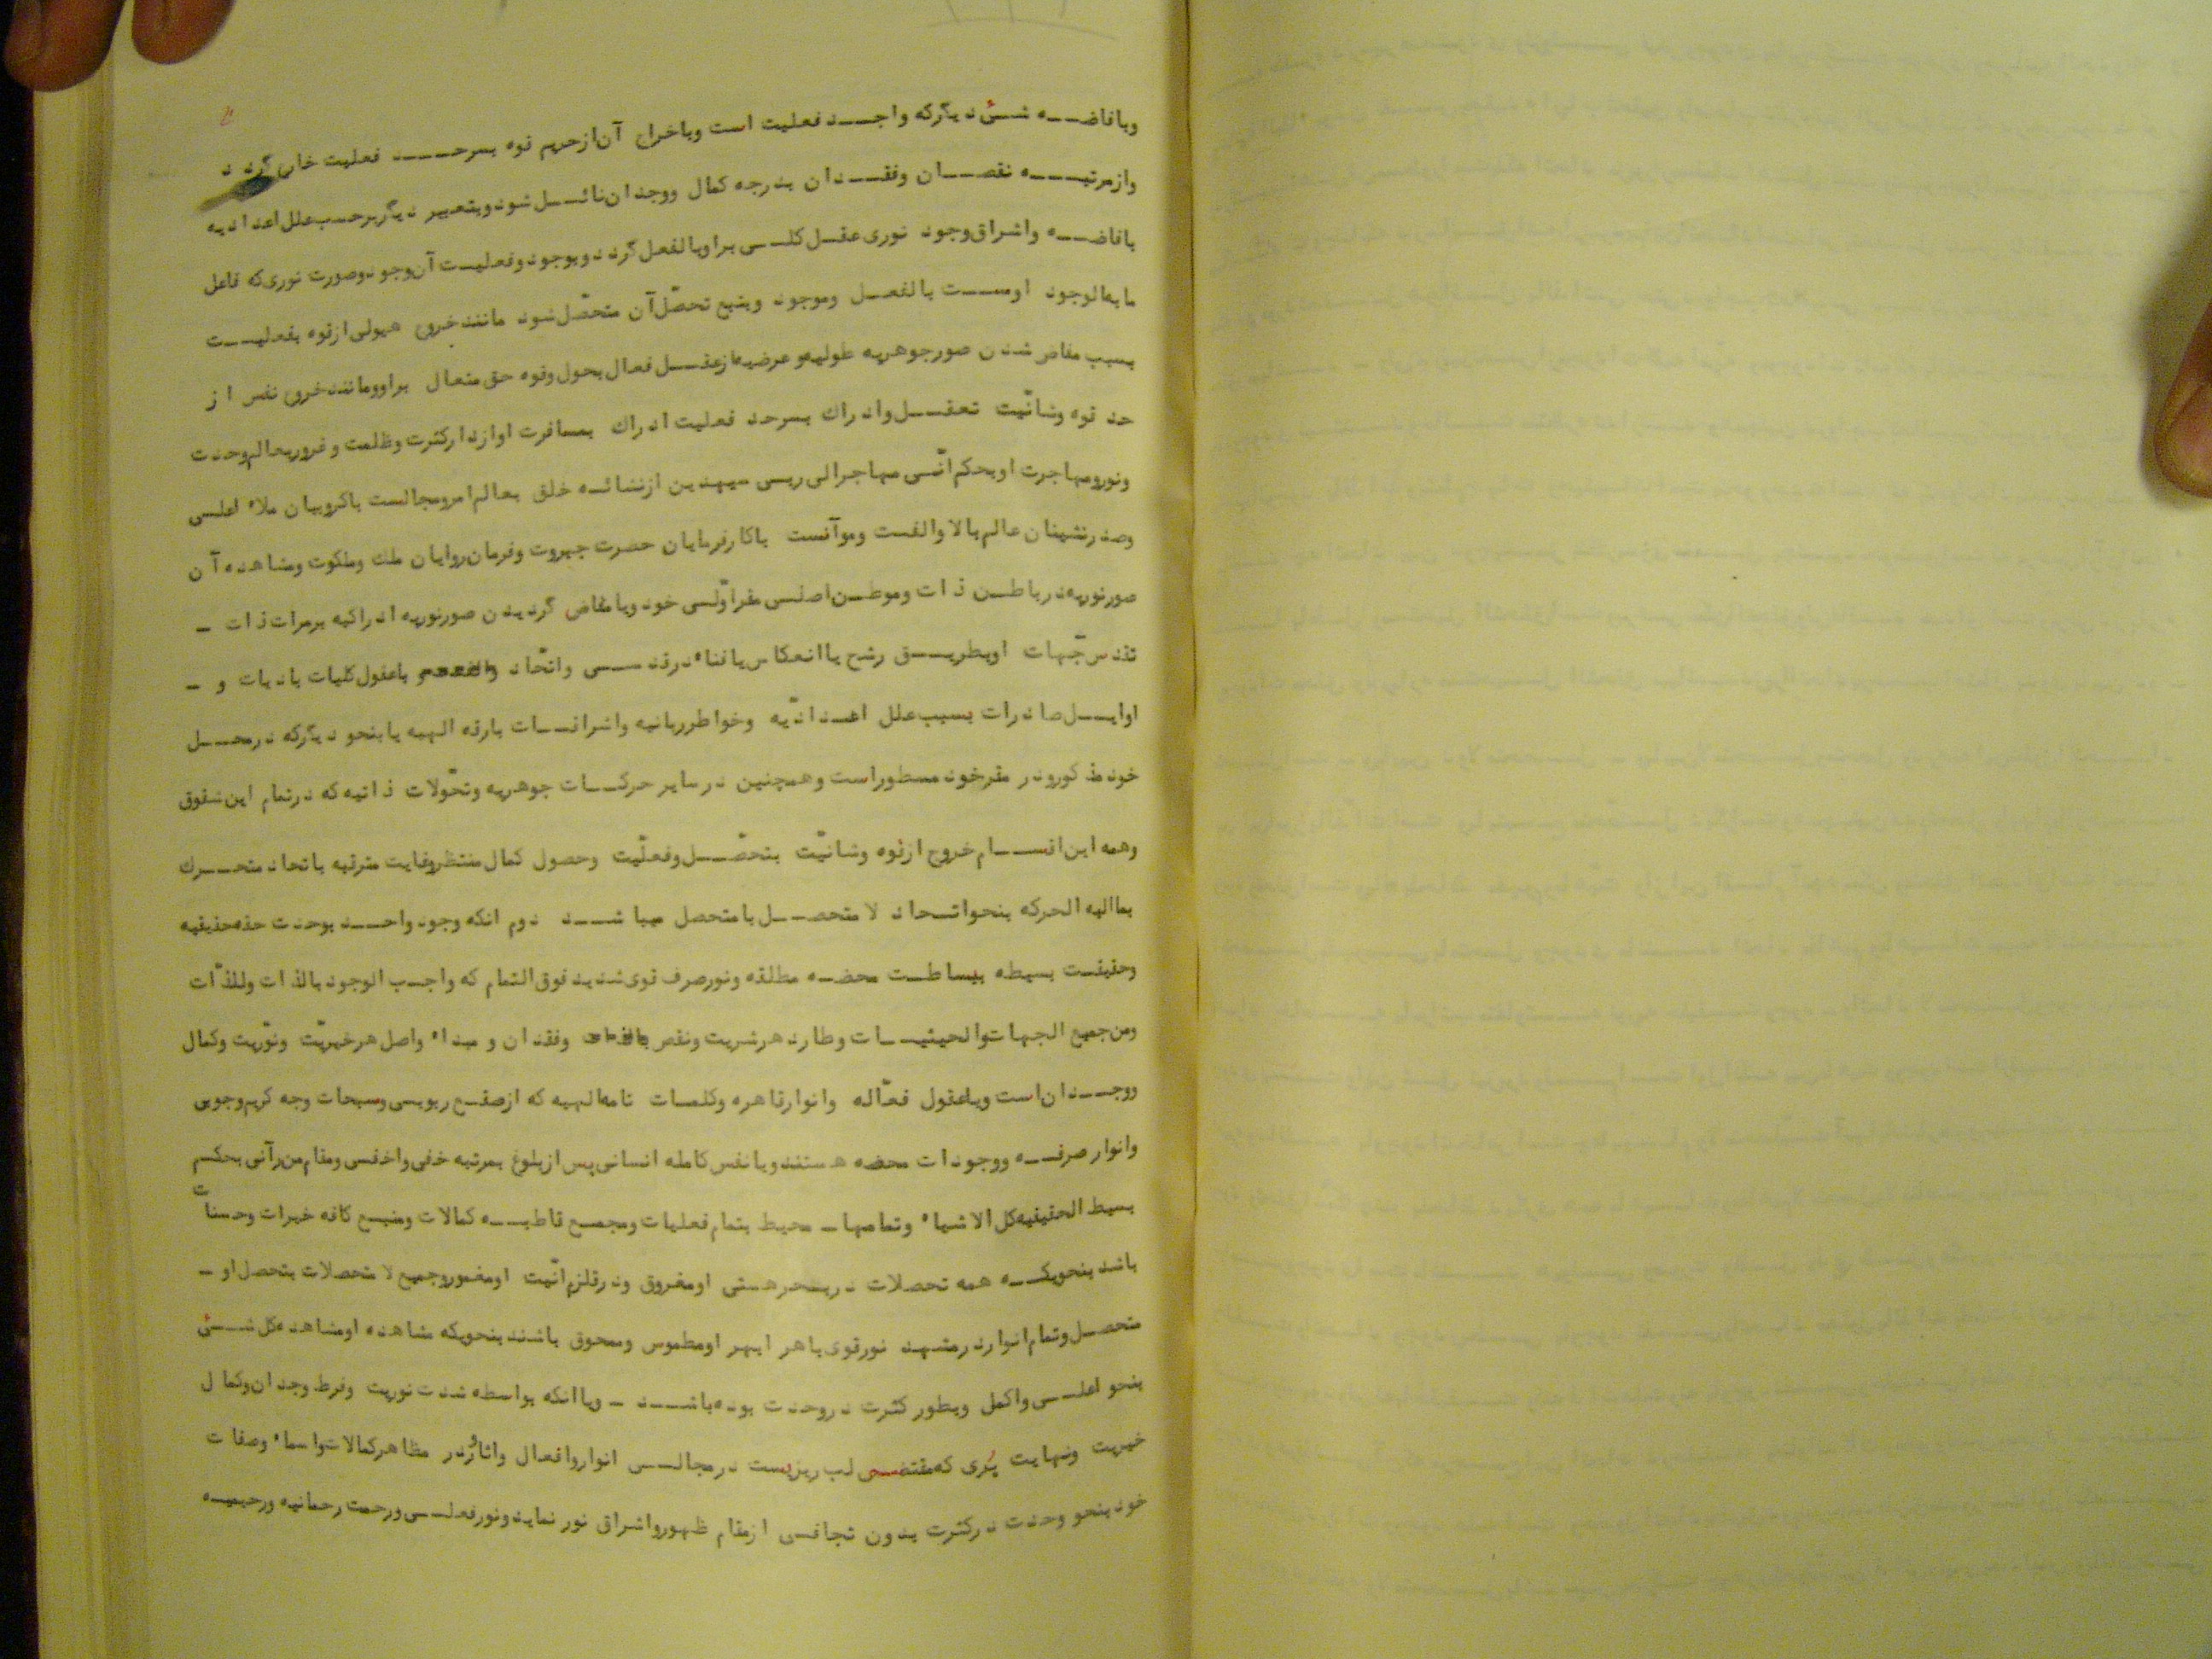 وبافاضه شئ دیگرکه واجد فعلیت است وباخراج آن ازحریم قوه بسرحد فعلیت خارج گردد
وازمرتبه نقصان وفقدان بدرجه کمال ووجدان نائل شود وبتعبیر دیگر برحسب علل اعدادیه
بافاضه واشراق وجود نوری عقل کلی براو بالفعل گردد وبوجود وفعلیت آن وجود وصورت نوری که فاعل
مابه الوجود اوست بالفعل وموجود وبتبع تحصّل آن متحصّل شود مانند خروج هیولی ازقوه بفعلیت
بسبب مفاض شدن صورجوهریه طولیه وعرضیه ازعقل فعال بحول وقوه حق متعال براوومانند خروج نفس از
حد قوه وشانّیت تعقل وادراك بسرحد فعلیت ادراك بمسافرت اوازدارکثرت وظلمت وغروربعالم وحدت
ونورومهاجرت اوبحکم انّی مهاجرالی ربی سیهدین ازنشائه خلق بعالم امرومجالست باکروبیان ملاء اعلی
وصدرنشینان عالم بالا والفت وموآنست باکارفرمایان حضرت جبروت وفرمان روایان ملك وملکوت ومشاهده آن
صورنوریه درباطن ذات وموطن اصلی مقراوّلی خود ویامفاض گردیدن صورنوریه ادراکیه برمرات ذات –
تقدس جهات اوبطریق رشح یاانعکاس یافناء درقدسی واتّحاد باعقول کلیات بادیات و –
اوایل صادرات بسبب علل اعدادّیه وخواطرربانیه واشراقات بارقه الهیه یابنحو دیگرکه درمحل
خود مذکورودر مقرخود مسطوراست وهمچنین درسایر حرکات جوهریه وتحّولات ذاتیه که درتمام این شقوق
وهمه این اقسام خروج ازقوه وشانیّت بتحصّل وفعلّیت وحصول کمال منتظروغایت مترقبه باتحاد متحرك
بماالیه الحرکه بنحواتحاد لا متحصل بامتحصل میباشد دوم انکه وجود واحد بوحدت حقه حقیقیه
وحقیقت بسیطه ببساطت محضه مطلقه ونورصرف قوی شدید فوق التمام که واجب الوجود بالذات وللذّات
ومن جمیع الجهات والحیثیات وطارد هرشریت ونقص وفقدان و مبداء واصل هرخیریّت ونوّریت وکمال
ووجدان است ویاعقول فعّاله وانوارقاهره وکلمات تامه الهیه که ازصقع ربوبی وسبحات وجه کریم وجوبی
وانوار صرفه ووجودات محضه هستند ویانفس کامله انسانی پس ازبلوغ بمرتبه خفی واخفی ومقام من رآنی بحکم
بسیط الحقیقیه کل الاشیاء وتمامها – محیط بتمام فعلیات ومجمع قاطبه کمالات ومنبع کافه خیرات وحسنات
باشد بنحویکه همه تحصلات دربحرهستی اومغروق ودرقلزم انّیت اومغمور وجمیع لا متحصلات بتحصل او –
متحصل وتمام انوار درمشهد نورقوی باهر ابهر اومطموس وممحوق باشند بنحویکه مشاهده اومشاهده کل شئ
بنحو اعلی واکمل وبطور کثرت دروحدت بوده باشد – ویاانکه بواسطه شدت نوریت وفرط وجدان وکمال
خیریت ونهایت پُری که مقتضی لب ریزیست درمجالی انواروافعال واثارودر مظاهرکمالات واسماء وصفات
خود بنحو وحدت درکثرت بدون تجافی ازمقام ظهورواشراق نور نماید ونورفعلی ورحمت رحمانیه ورحیمیه